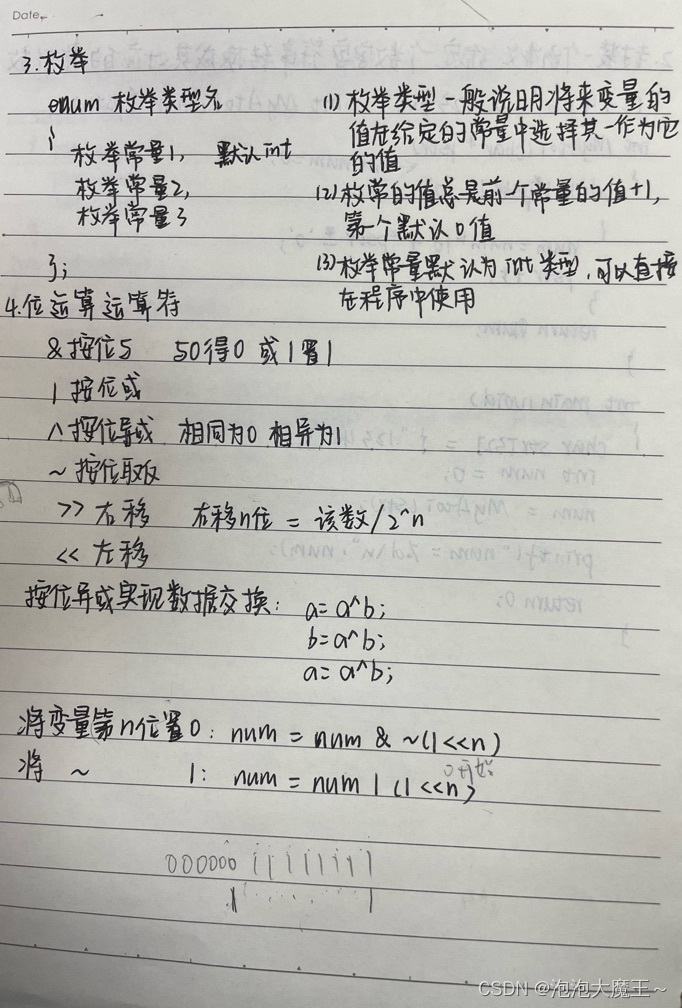 Date.
3.枚举
enum 枚举类型名
{
枚举常量1, 默认int
枚举常量2,
枚举常量3
};
(1) 枚举类型一般说明将来变量的
值在给定的常量中选择其一作为它
的值
(2) 枚常的值总是前一个常量的值+1,
第一个默认0值
(3) 枚举常量默认为int类型,可以直接
在程序中使用
4.位运算运算符
& 按位与 与0得0 或1置1
| 按位或
^ 按位异或 相同为0 相异为1
~ 按位取反
>> 右移 右移n位 = 该数/2^n
<< 左移
按位异或实现数据交换: a=a^b;
b=a^b;
a=a^b;
将变量第n位置0: num = num & ~(1<<n)
0开始
将 ~ 1: num = num | (1<<n)
000000 1111111
1 1
CSDN @泡泡大魔王~